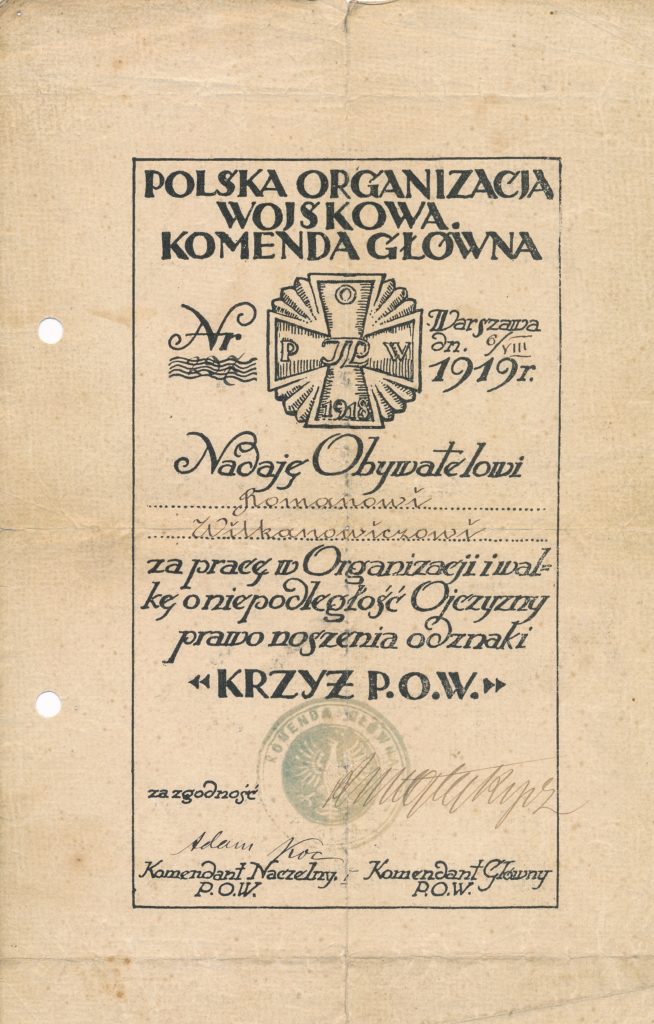 POLSKA ORGANIZACJA
WOJSKOWA.
KOMENDA GŁÓWNA
Nr
O
P JP W
1918
Warszawa
dn. 6/VIII
1919 r.
Nadaję Obywatelowi
Romanowi
Wilkanowiczowi
za pracę w Organizacji i wal=
kę o niepodległość Ojczyzny
prawo noszenia odznaki
«KRZYŻ P.O.W.»
KOMENDA GŁÓWNA
za zgodność
Adam Koc
Komendant Naczelny. Komendant Główny
P.O.W. P.O.W.